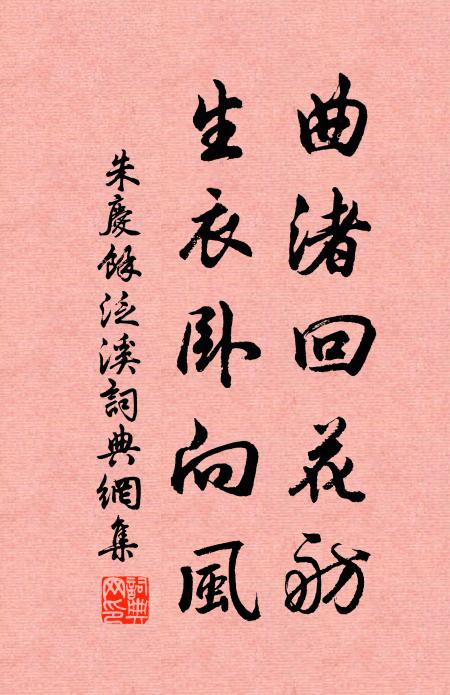 曲渚回花舫
生衣卧向風
朱慶餘泛溪詞典網集
詞典网印